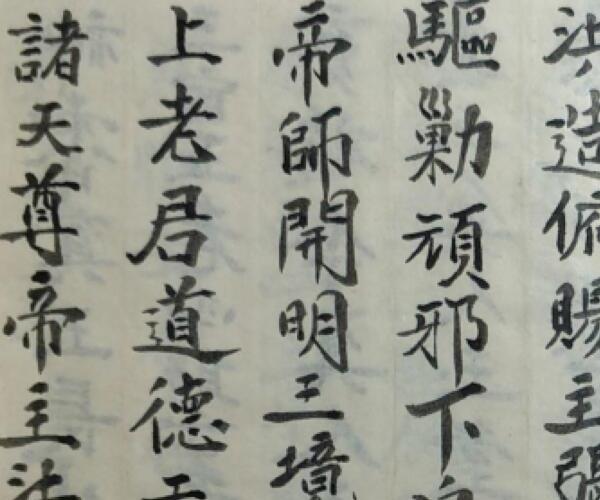 洪造俯賜主張
驅勦頑邪下
帝師開明三境
上老君道德天
諸天尊帝主法